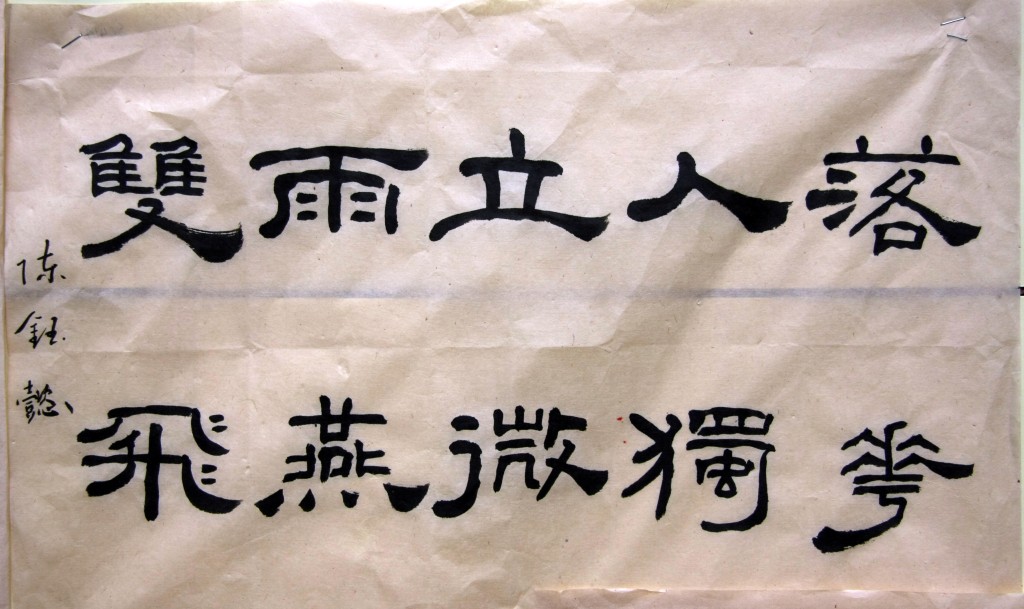 落華
人獨
立微
雨燕
雙飛
陈鈺懿